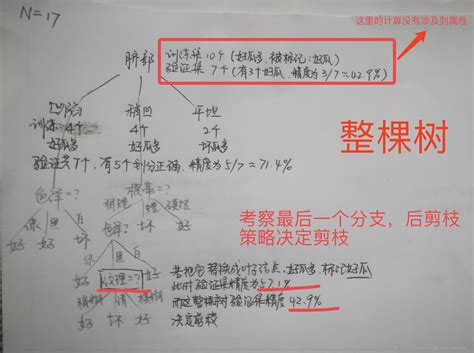 N=17
这里的计算没有涉及到属性
脐部
训练集 10个 (好瓜多，被标记:好瓜)
验证集 7个 (有3个好瓜，精度为 3/7≈42.9%)
整棵树
凹陷 稍凹 平坦
训练 4个 4个 2个
好瓜多 好瓜多 坏瓜多
验证共7个，有5个划分正确，精度为5/7=71.4%
色泽=? 根蒂=?
考察最后一个分支，后剪枝
策略决定剪枝
好 好 坏 色泽=? 坏 好
好 纹理=? 好
若把它替换成叶子结点，好瓜多，标记好瓜
此时验证集精度为57.1%
而这整棵树验证集精度42.9%
好 坏 好
决定剪枝